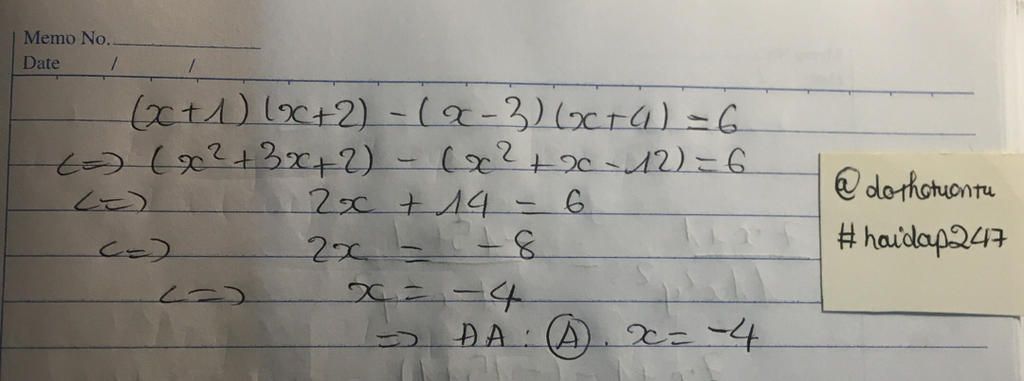 Memo No.
Date / /
(x+1)(x+2) - (x-3)(x+4) = 6
<=> (x²+3x+2) - (x²+x-12) = 6
<=> 2x + 14 = 6
<=> 2x = -8
<=> x = -4
=> ĐA : Ⓐ. x = -4
@dothotuontu
#haidap247